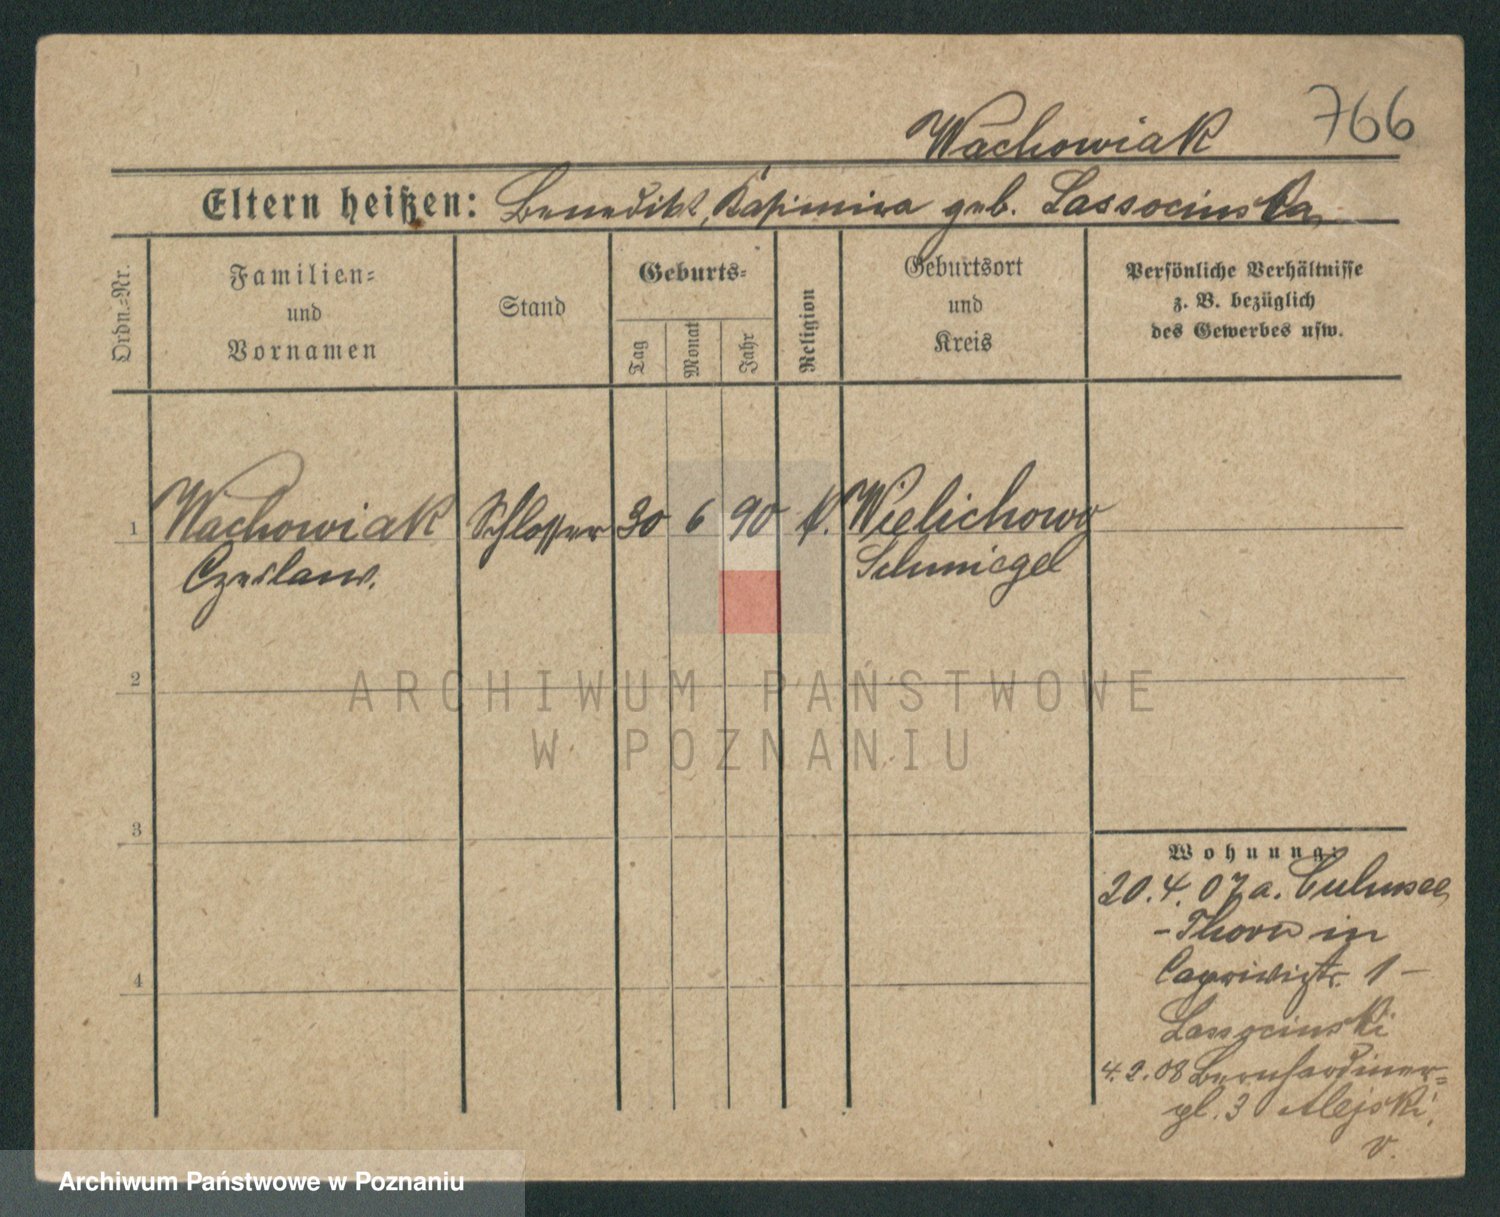 766
Wachowiak
Eltern heißen: Benedikt, Kasimira geb. Lassocinska,
Ordn.-Nr.
Familien-
und
Vornamen
Stand
Geburts-
Tag
Monat
Jahr
Religion
Geburtsort
und
Kreis
Persönliche Verhältnisse
z. B. bezüglich
des Gewerbes usw.
1 Wachowiak Schlosser 30 6 90 k. Wielichowo
Czeslaw. Schmiegel
2
3
4
Wohnung:
20.4.07 a. Culmsee
-Thorn in
Caprivistr. 1-
Lassocinski
4.2.08 Bernhardiner-
pl. 3 Alejski.
v.
ARCHIWUM PAŃSTWOWE
W POZNANIU
Archiwum Państwowe w Poznaniu